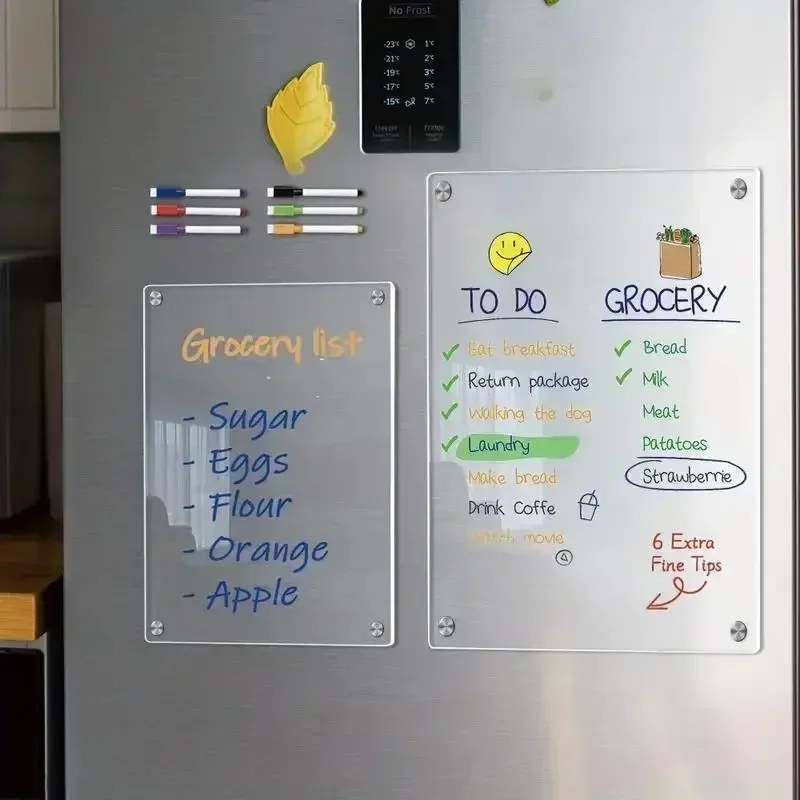 No Frost
-23°C 1°C
-21°C 2°C
-19°C 3°C
-17°C 5°C
-15°C 7°C
Freezer Fridge
Grocery list
- Sugar
- Eggs
- Flour
- Orange
- Apple
TO DO
Eat breakfast
Return package
Walking the dog
Laundry
Make bread
Drink Coffe
movie
GROCERY
Bread
Milk
Meat
Patatoes
Strawberrie
6 Extra
Fine Tips